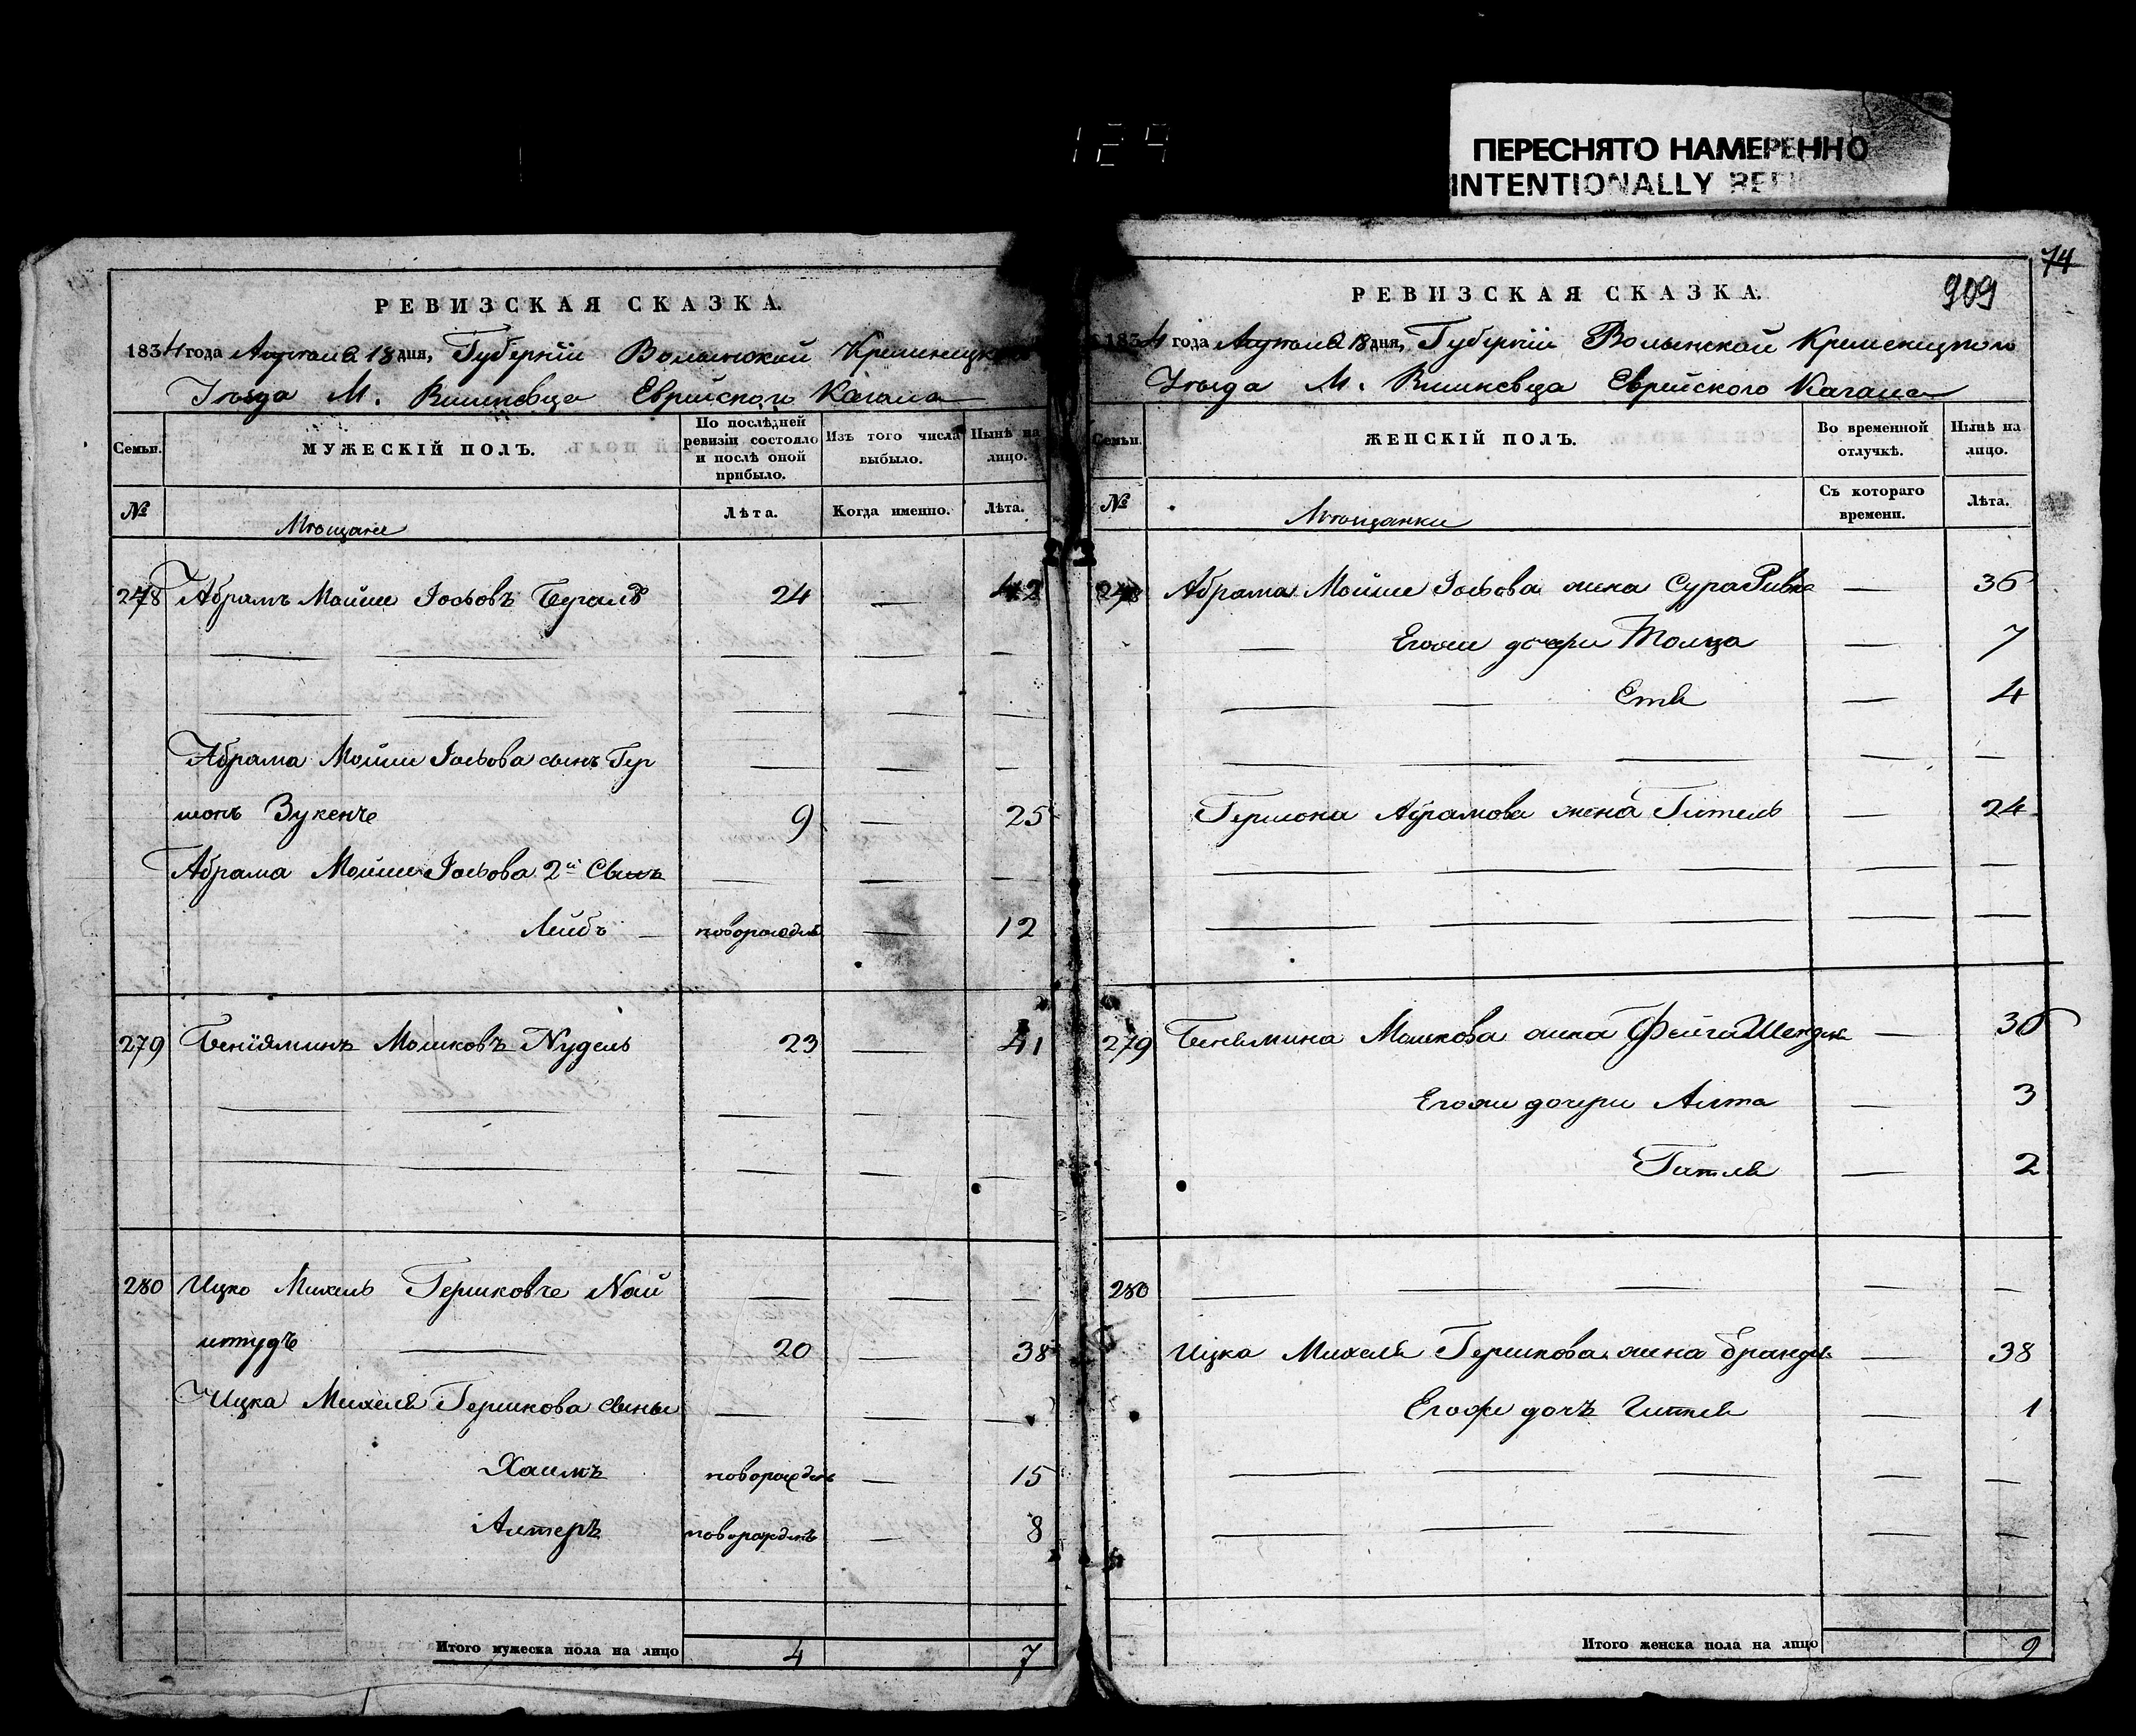 129
ПЕРЕСНЯТО НАМЕРЕННО
INTENTIONALLY
РЕВИЗСКАЯ СКАЗКА.
1834 года Апреля 18 дня, Губерніи Волынской Кременецкаго
Уѣзда М. Вишневца Еврейского Кагала
Семьи. МУЖЕСКІЙ ПОЛЪ. По послѣдней ревизіи состояло и послѣ оной прибыло. Изъ того числа выбыло. Нынѣ на лицо.
№ Мѣщане Лѣта. Когда именно. Лѣта.
278 Абрамъ Мойше Іосьовъ 24 — 42
Абрама Мойши Іосьова сынъ Гер
шонъ Зукенъ 9 — 25
Абрама Мойши Іосьова 2й Сынъ
Лейбъ — новорожден — 12
279 Беніяминъ Мошковъ Nудель 23 — 41
280 Ицко Михель Гершковъ Nай
штудъ 20 — 38
Ицка Михеля Гершкова сыны
Хаимъ новорожден — 15
Алтеръ новорожденъ — 8
Итого мужеска пола на лицо 4 7
74
909
РЕВИЗСКАЯ СКАЗКА.
1834 года Апреля 18 дня, Губерніи Волынской Кременецкого
Уѣзда М. Вишневца Еврейского Кагала
Семьи. ЖЕНСКІЙ ПОЛЪ. Во временной отлучкѣ. Нынѣ на лицо.
№ Мѣщанки Съ котораго времени. Лѣта.
278 Абрама Мойши Іосьова жена Сура Ривка — 36
— Егоже дочери — 7
— — Етя — 4
Гершона Абрамова жена Гитель — 24
279 Бенямина Мошкова жена Фейга Шендля — 36
Егоже дочери Алта — 3
Гитля — 2
280
Ицка Михеля Гершкова жена Брандля — 38
Егоже дочь Гитля — 1
Итого женска пола на лицо 9